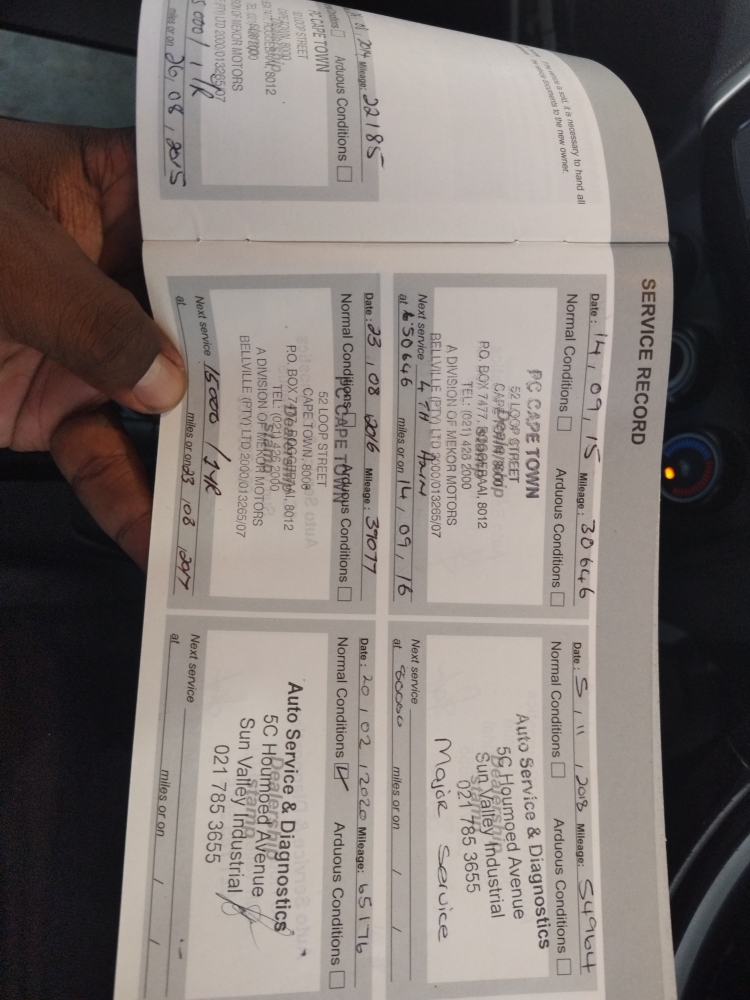 If the vehicle is sold, it is necessary to hand all
documents to the new owner.
2014 Mileage: 22185
Arduous Conditions
PC CAPE TOWN
LOOP STREET
8012
OF MEKOR MOTORS
LTD 2000/013265/07
miles or on 26, 08, 2015
SERVICE RECORD
Date: 14, 09, 15 Mileage: 30646
Normal Conditions Arduous Conditions
PC CAPE TOWN
52 LOOP STREET
P.O. BOX 7477, ROGGEBAAI, 8012
TEL: (021) 428 2000
A DIVISION OF MEKOR MOTORS
BELLVILLE (PTY) LTD 2000/013265/07
Next service
at 50646 miles or on 14, 09, 16
Date: 5, 11, 2018 Mileage: 54964
Normal Conditions Arduous Conditions
Auto Service & Diagnostics
5C Houmoed Avenue
Sun Valley Industrial
021 785 3655
Major Service
Next service
at 80000 miles or on / /
Date: 23, 08 2016 Mileage: 39077
Normal Conditions Arduous Conditions
PC CAPE TOWN
52 LOOP STREET
CAPE TOWN, 8000
P.O. BOX 7477, ROGGEBAAI, 8012
TEL: (021) 428 2000
A DIVISION OF MEKOR MOTORS
BELLVILLE (PTY) LTD 2000/013265/07
Next service 15000 / 1YR
at miles or on 23, 08, 2017
Date: 20, 02, 2020 Mileage: 65176
Normal Conditions Arduous Conditions
Auto Service & Diagnostics
5C Houmoed Avenue
Sun Valley Industrial
021 785 3655
Next service
at miles or on / /